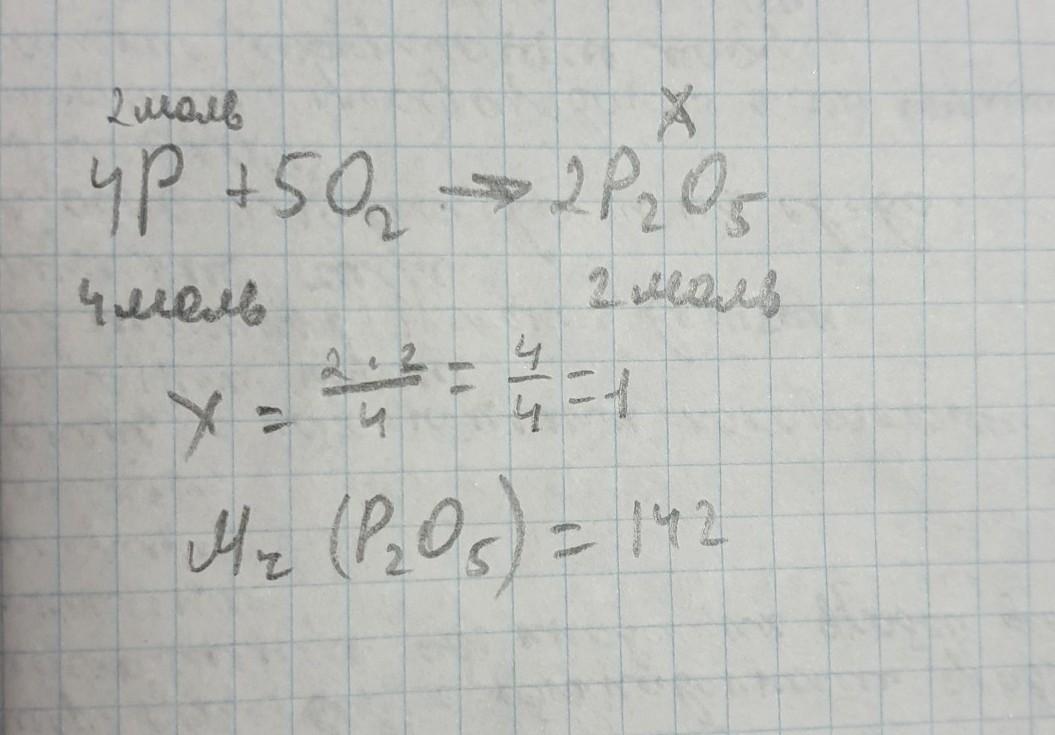 2 моль X
4P + 5O₂ → 2P₂O₅
4 моль 2 моль
X = 2·2/4 = 4/4 = 1
Mr (P₂O₅) = 142